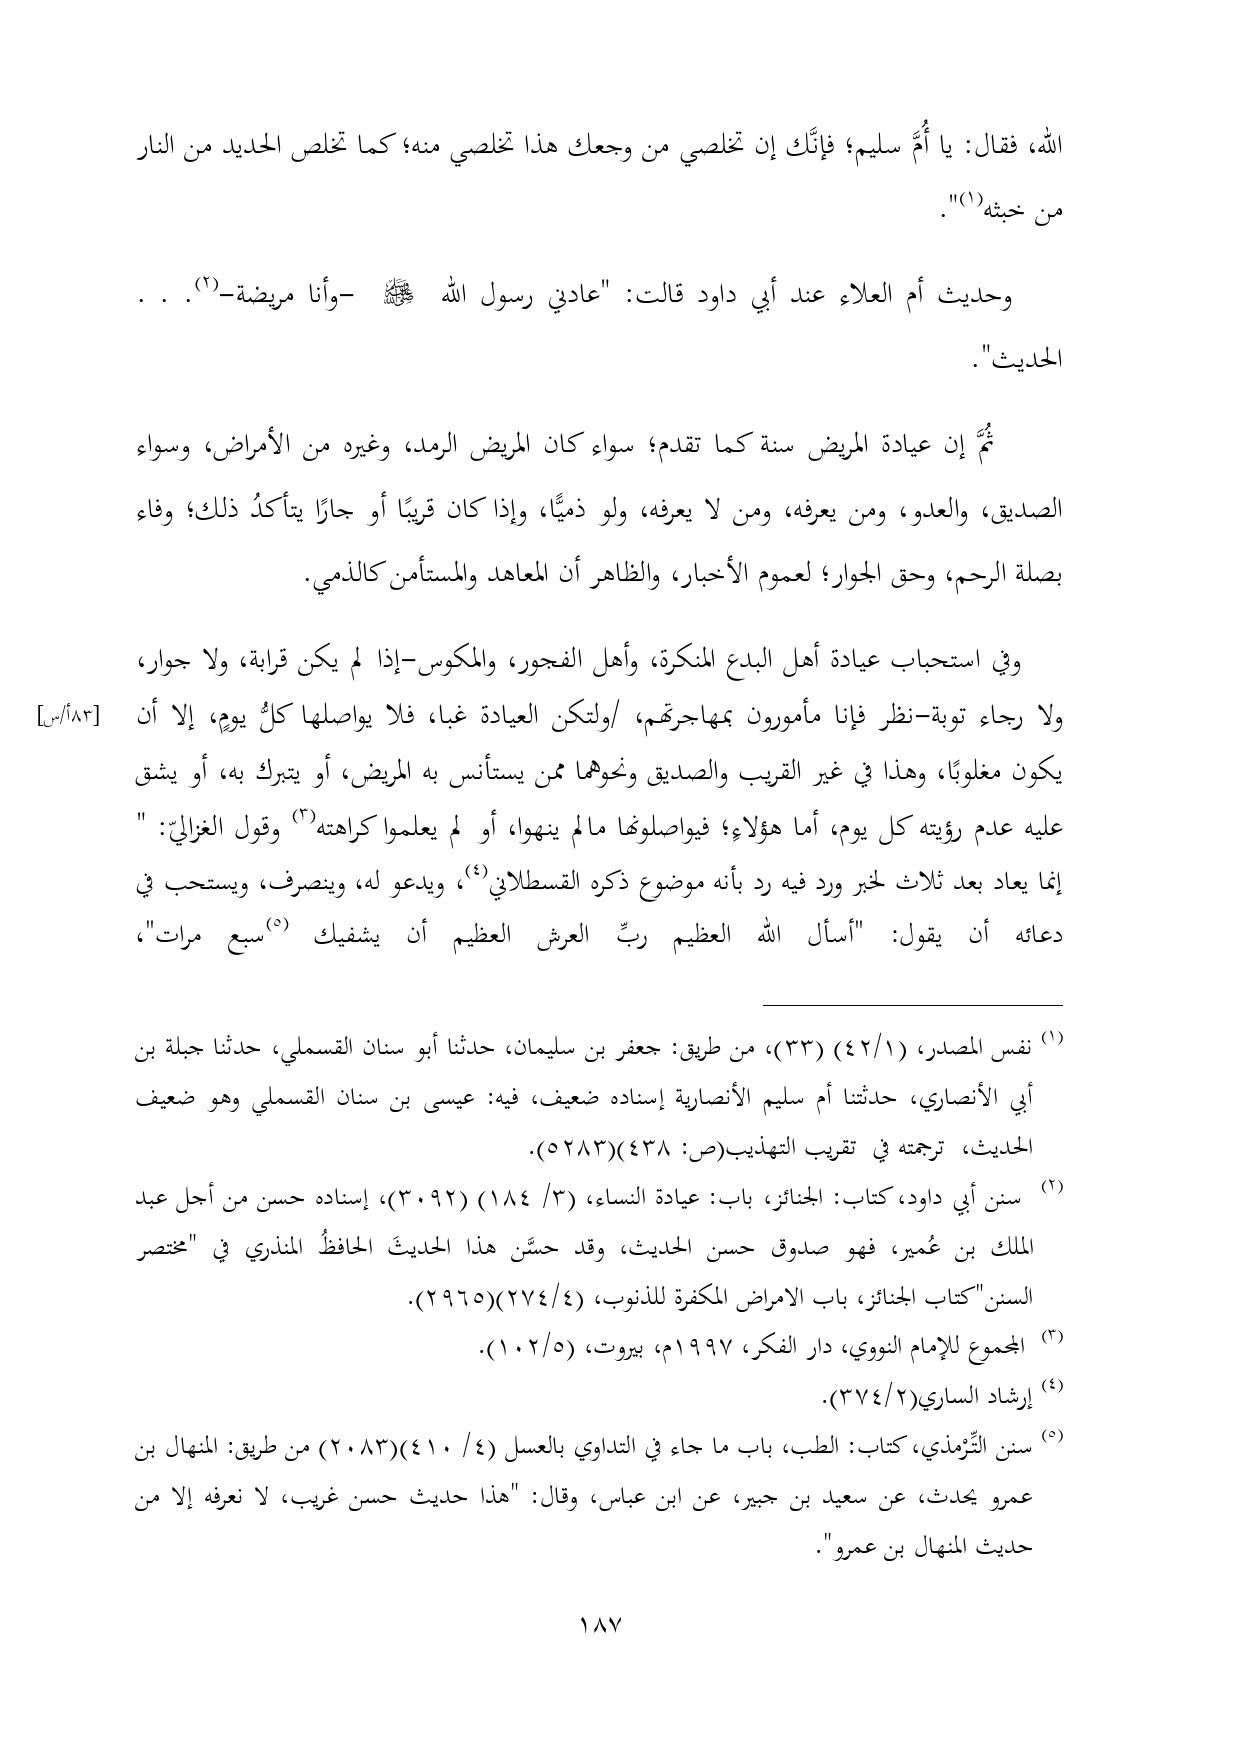 الله، فقال: يا أُمَّ سليم؛ فإنَّك إن تخلصي من وجعك هذا تخلصي منه؛ كما تخلص الحديد من النار
من خبثه(١)".
وحديث أم العلاء عند أبي داود قالت: "عادني رسول الله ﷺ –وأنا مريضة–(٢). . .
الحديث".
ثُمَّ إن عيادة المريض سنة كما تقدم؛ سواء كان المريض الرمد، وغيره من الأمراض، وسواء
الصديق، والعدو، ومن يعرفه، ومن لا يعرفه، ولو ذميًّا، وإذا كان قريبًا أو جارًا يتأكدُ ذلك؛ وفاء
بصلة الرحم، وحق الجوار؛ لعموم الأخبار، والظاهر أن المعاهد والمستأمن كالذمي.
وفي استحباب عيادة أهل البدع المنكرة، وأهل الفجور، والمكوس–إذا لم يكن قرابة، ولا جوار،
ولا رجاء توبة–نظر فإنا مأمورون بمهاجرتهم، /ولتكن العيادة غبا، فلا يواصلها كلُّ يومٍ، إلا أن [٨٣أ/س]
يكون مغلوبًا، وهذا في غير القريب والصديق ونحوهما ممن يستأنس به المريض، أو يتبرك به، أو يشق
عليه عدم رؤيته كل يوم، أما هؤلاءِ؛ فيواصلونها مالم ينهوا، أو لم يعلموا كراهته(٣) وقول الغزاليّ: "
إنما يعاد بعد ثلاث لخبر ورد فيه رد بأنه موضوع ذكره القسطلاني(٤)، ويدعو له، وينصرف، ويستحب في
دعائه أن يقول: "أسأل الله العظيم ربِّ العرش العظيم أن يشفيك (٥)سبع مرات"،
(١) نفس المصدر، (٤٢/١) (٣٣)، من طريق: جعفر بن سليمان، حدثنا أبو سنان القسملي، حدثنا جبلة بن
أبي الأنصاري، حدثتنا أم سليم الأنصارية إسناده ضعيف، فيه: عيسى بن سنان القسملي وهو ضعيف
الحديث، ترجمته في تقريب التهذيب(ص: ٤٣٨)(٥٢٨٣).
(٢) سنن أبي داود، كتاب: الجنائز، باب: عيادة النساء، (٣/ ١٨٤) (٣٠٩٢)، إسناده حسن من أجل عبد
الملك بن عُمير، فهو صدوق حسن الحديث، وقد حسَّن هذا الحديثَ الحافظُ المنذري في "مختصر
السنن"كتاب الجنائز، باب الامراض المكفرة للذنوب، (٢٧٤/٤)(٢٩٦٥).
(٣) المجموع للإمام النووي، دار الفكر، ١٩٩٧م، بيروت، (١٠٢/٥).
(٤) إرشاد الساري(٣٧٤/٢).
(٥) سنن التِّرْمذي، كتاب: الطب، باب ما جاء في التداوي بالعسل (٤/ ٤١٠)(٢٠٨٣) من طريق: المنهال بن
عمرو يحدث، عن سعيد بن جبير، عن ابن عباس، وقال: "هذا حديث حسن غريب، لا نعرفه إلا من
حديث المنهال بن عمرو".
١٨٧